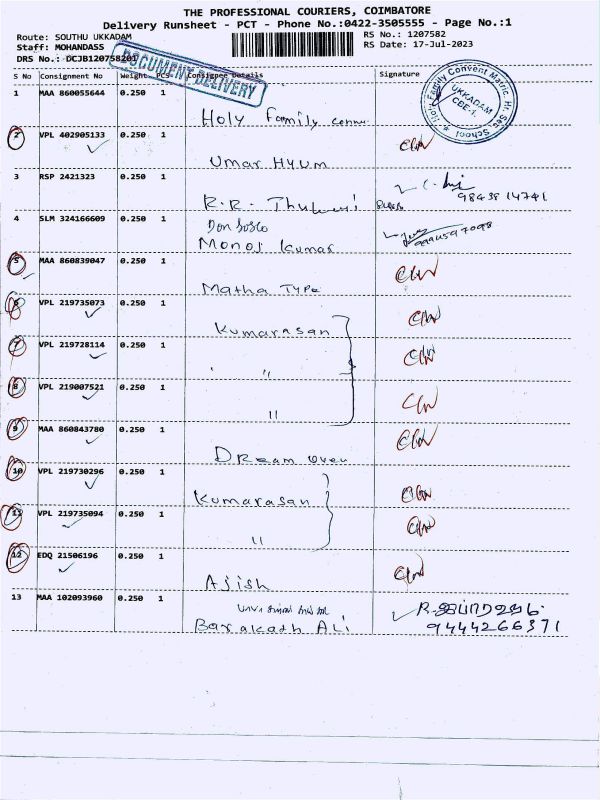 THE PROFESSIONAL COURIERS, COIMBATORE
Delivery Runsheet - PCT - Phone No.:0422-3505555 - Page No.:1
Route: SOUTHU UKKADAM
RS No.: 1207582
Staff: MOHANDASS
RS Date: 17-Jul-2023
DRS No.: DCJB120758201
DOCUMENT DELIVERY
S No Consignment No Weight PCS Consignee Details Signature
Holy Family Convent Matric. Hr. Sec. School
UKKADAM
CBE-1.
1 MAA 860055644 0.250 1
Holy Family
2 VPL 402905133 0.250 1
Umar Hyum
3 RSP 2421323 0.250 1
R.R.
9843814741
4 SLM 324166609 0.250 1
Don bosco
Manoj Kumar
5 MAA 860839047 0.250 1
Matha Type
6 VPL 219735073 0.250 1
Kumarasan
7 VPL 219728114 0.250 1
"
8 VPL 219007521 0.250 1
"
9 MAA 860843780 0.250 1
Dream oven
10 VPL 219730296 0.250 1
Kumarasan
11 VPL 219735094 0.250 1
"
12 EDQ 21506196 0.250 1
Ajish
13 MAA 102093960 0.250 1
Barakath Ali
9444266371